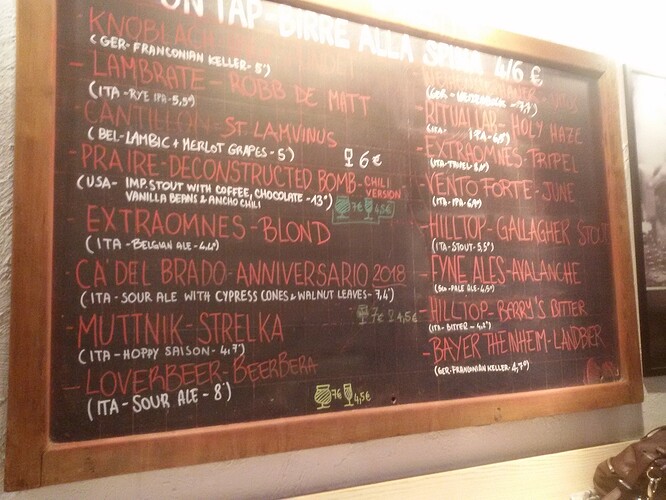 ON TAP-BIRRE ALLA SPINA 4/6 €
KNOBLACH
(GER-FRANCONIAN KELLER-5°)
-LAMBRATE-ROBB DE MATT
(ITA-RYE IPA-5,5°)
-CANTILLON-ST LAMVINUS
(BEL-LAMBIC + MERLOT GRAPES-5°)
6€
-PRAIRE-DECONSTRUCTED BOMB-CHILI VERSION
(USA- IMP.STOUT WITH COFFEE, CHOCOLATE -13°)
VANILLA BEANS & ANCHO CHILI
7€ 4,5€
EXTRAOMNES-BLOND
(ITA-BELGIAN ALE-4,4°)
-CA'DEL BRADO-ANNIVERSARIO 2018
(ITA-SOUR ALE WITH CYPRESS CONES & WALNUT LEAVES-7,4°)
7€ 4,5€
-MUTTNIK-STRELKA
(ITA-HOPPY SAISON-4,7°)
-LOVERBEER-BEERBERA
(ITA-SOUR ALE-8°)
7€ 4,5€
-RITUALLAB-HOLY HAZE
(ITA- IPA-
-EXTRAOMNES-TRIPEL
(ITA-TRIPEL-
-VENTO FORTE-JUNE
(ITA-IPA-
-HILLTOP-GALLAGHER STOUT
(ITA-STOUT-5,5°)
-FYNE ALES-AVALANCHE
(Sco-PALE ALE-4,5°)
-HILLTOP-BERRY'S BITTER
(ITA-BITTER-
-BAYER THEINHEIM-LANDBIER
(GER-FRANCONIAN KELLER-4,7°)